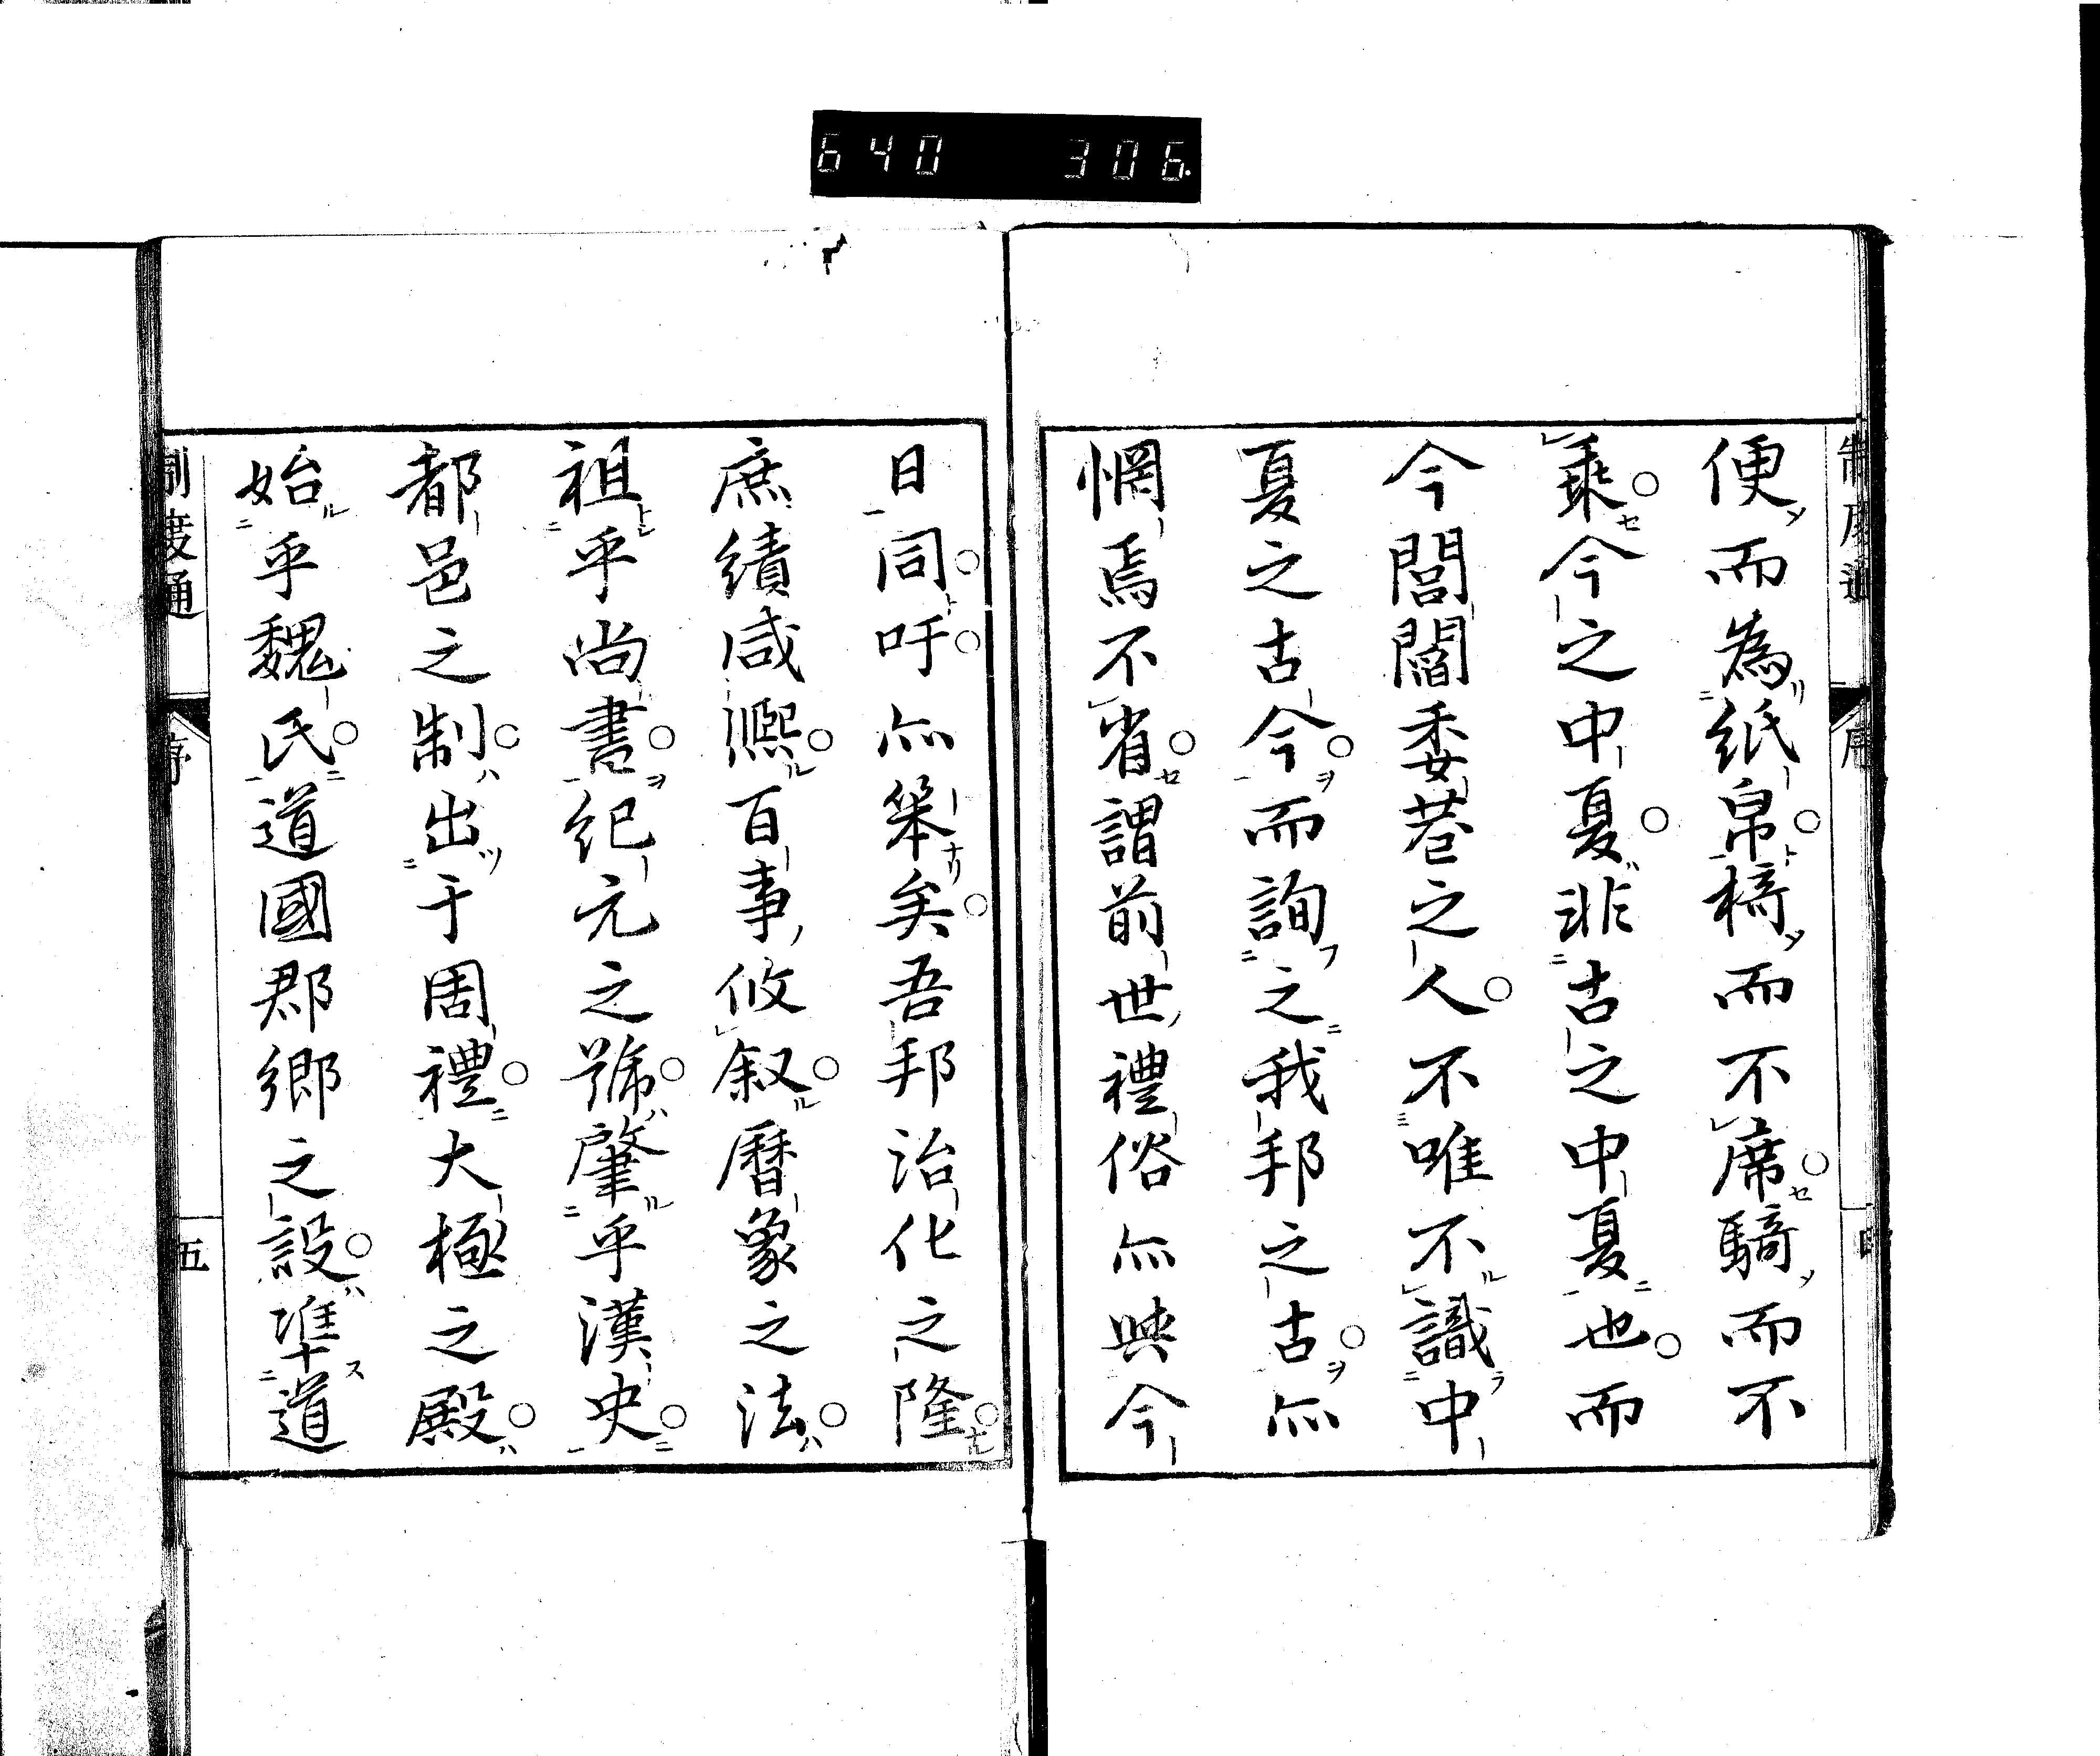 640 306.
制度通 序 四
便而為紙帛椅而不席騎而不
乗今之中夏非古之中夏也而
今閭閻委巷之人不唯不識中
夏之古今而詢之我邦之古亦
惘焉不省謂前世禮俗亦與今
日同吁亦笨矣吾邦治化之隆
庶績咸熈百事攸叙曆象之法
祖乎尚書紀元之號肇乎漢史
都邑之制出于周禮大極之殿
始乎魏氏道國郡郷之設準道
制度通 序 五